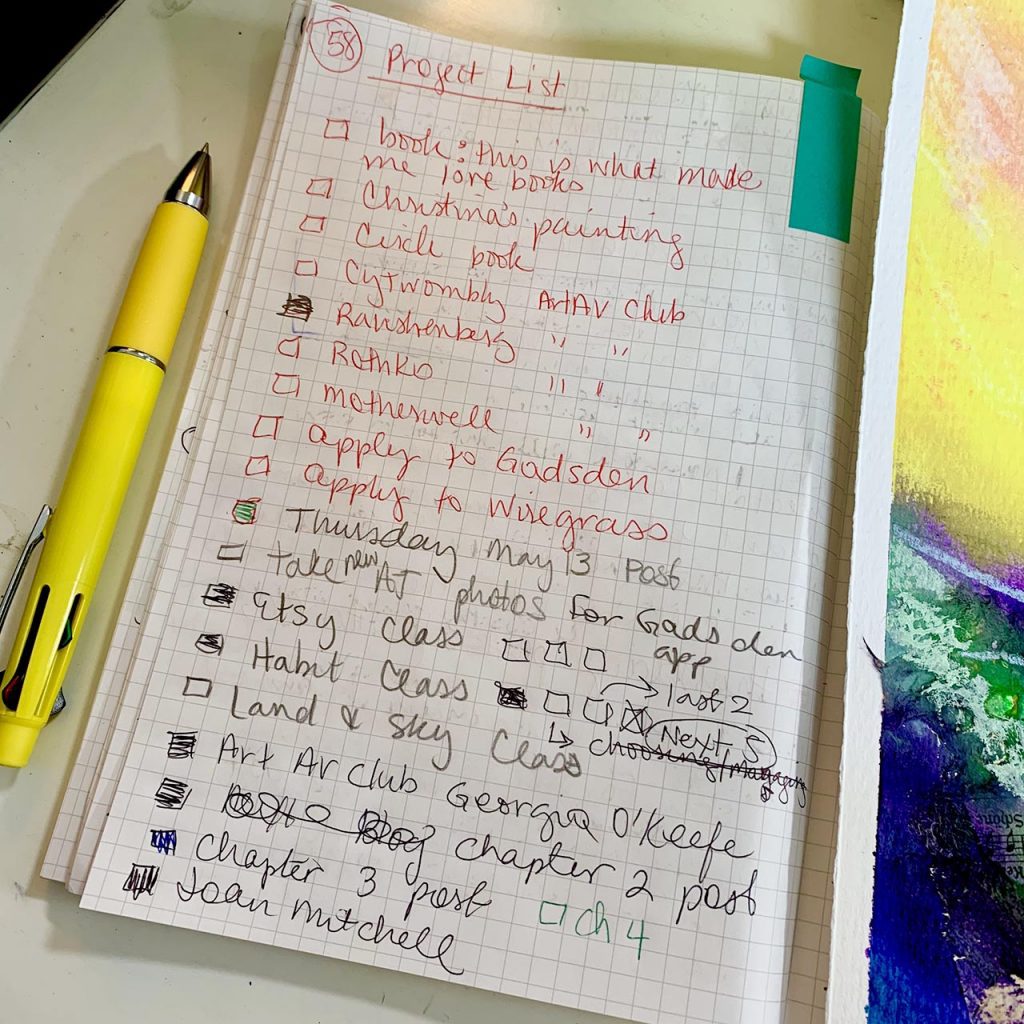 58 Project List
book: this is what made
me love books
Christina's painting
Circle book
Cy Twombly ArtAV Club
Raushenberg " "
Rothko " "
motherwell " "
apply to Gadsden
apply to Wiregrass
Thursday May 13 post
take new AJ photos for Gadsden
app
Etsy Class
Habit Class → last 2
Land & Sky Class Next, 5
↳ choosing/
Art AV Club Georgia O'Keefe
Blog chapter 2 post
Chapter 3 post
Ch 4
Joan Mitchell